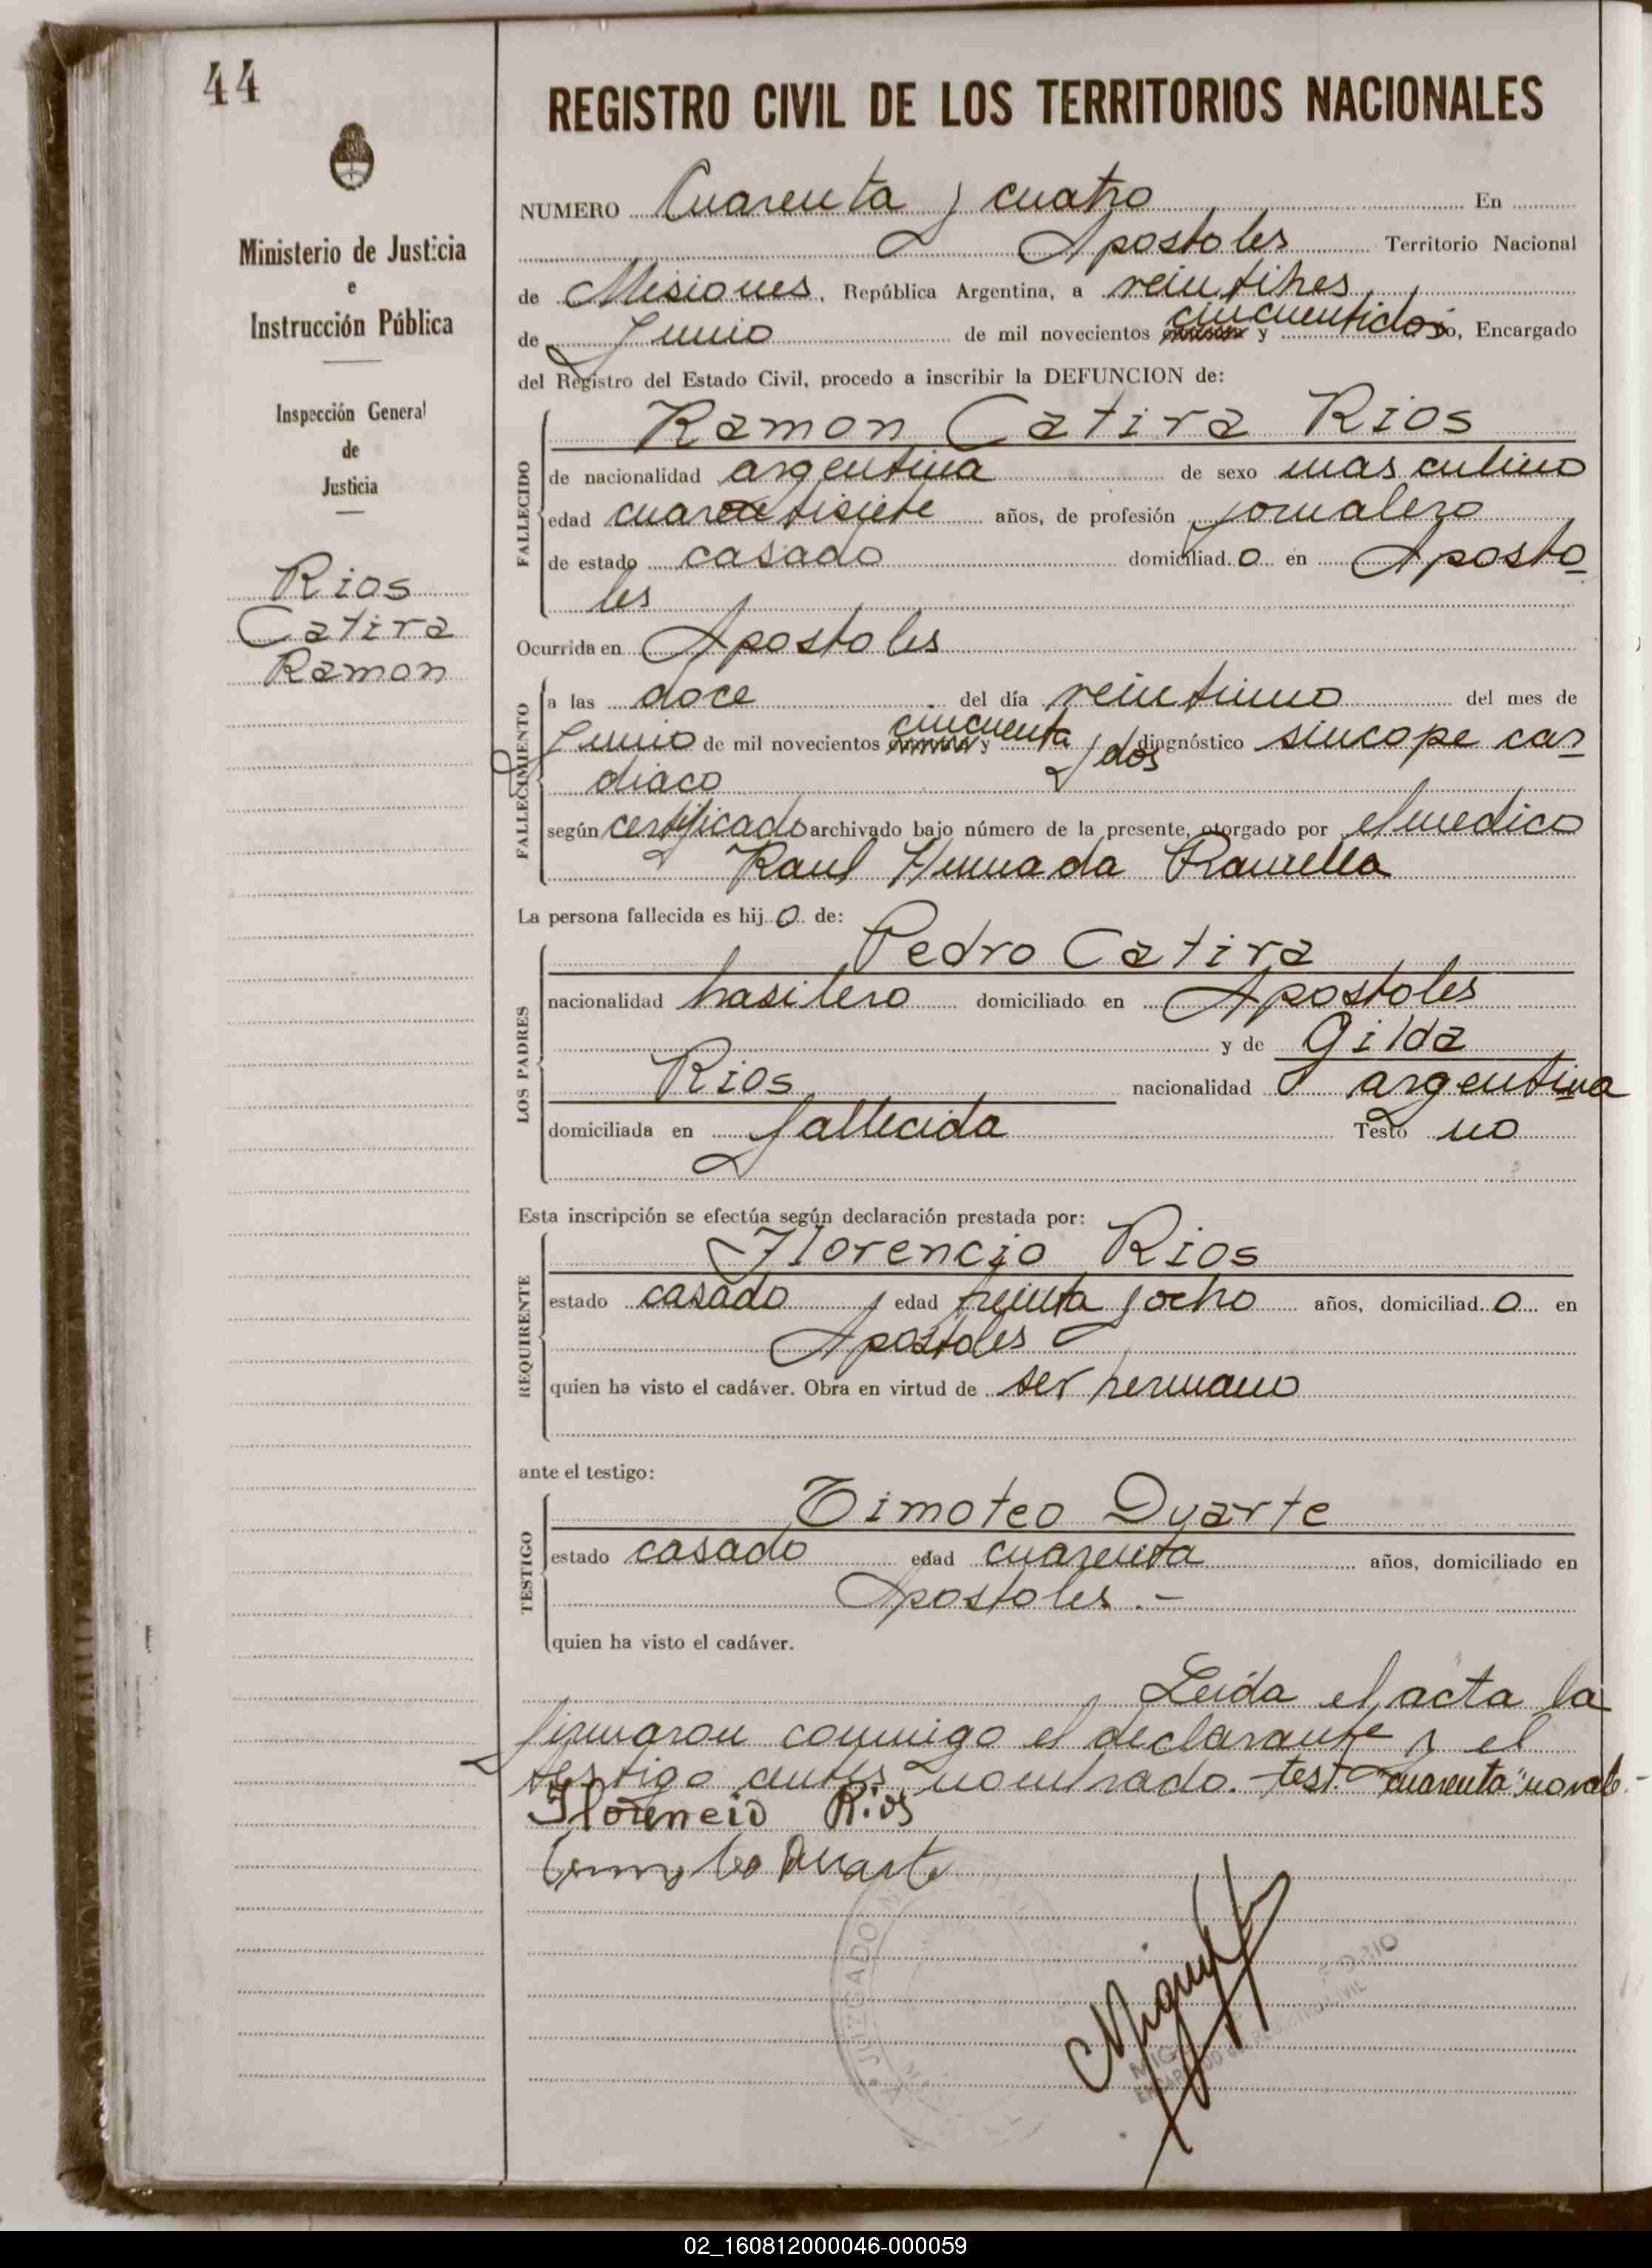 44
Ministerio de Justicia
e
Instrucción Pública
Inspección General
de
Justicia
Rios
Catira
Ramon
REGISTRO CIVIL DE LOS TERRITORIOS NACIONALES
NUMERO Cuarenta y cuatro En
Apostoles Territorio Nacional
de Misiones, República Argentina, a veintitres
de Junio de mil novecientos y cincuentidos yo, Encargado
del Registro del Estado Civil, procedo a inscribir la DEFUNCION de:
FALLECIDO
Ramon Catira Rios
de nacionalidad argentina de sexo masculino
edad cuarentisiete años, de profesión jornalero
de estado casado domiciliado en Aposto
les
Ocurrida en Apostoles
FALLECIMIENTO
a las doce del día veintiuno del mes de
Junio de mil novecientos cincuenta y dos diagnóstico sincope car
diaco
según certificado archivado bajo número de la presente, otorgado por el medico
Raul
La persona fallecida es hijo de:
LOS PADRES
Pedro Catira
nacionalidad brasilero domiciliado en Apostoles
y de Gilda
Rios nacionalidad argentina
domiciliada en fallecida Testó no
Esta inscripción se efectúa según declaración prestada por:
REQUIRENTE
Florencio Rios
estado casado edad treinta y ocho años, domiciliado en
Apostoles
quien ha visto el cadáver. Obra en virtud de ser hermano
ante el testigo:
TESTIGO
Timoteo Duarte
estado casado edad cuarenta años, domiciliado en
Apostoles.-
quien ha visto el cadáver.
Leida el acta la
firmaron conmigo el declarante y el
testigo antes nombrado.- test. "cuarenta" no vale.-
Florencio Rios
Duarte
JUZGADO
Miguel
02_160812000046-000059